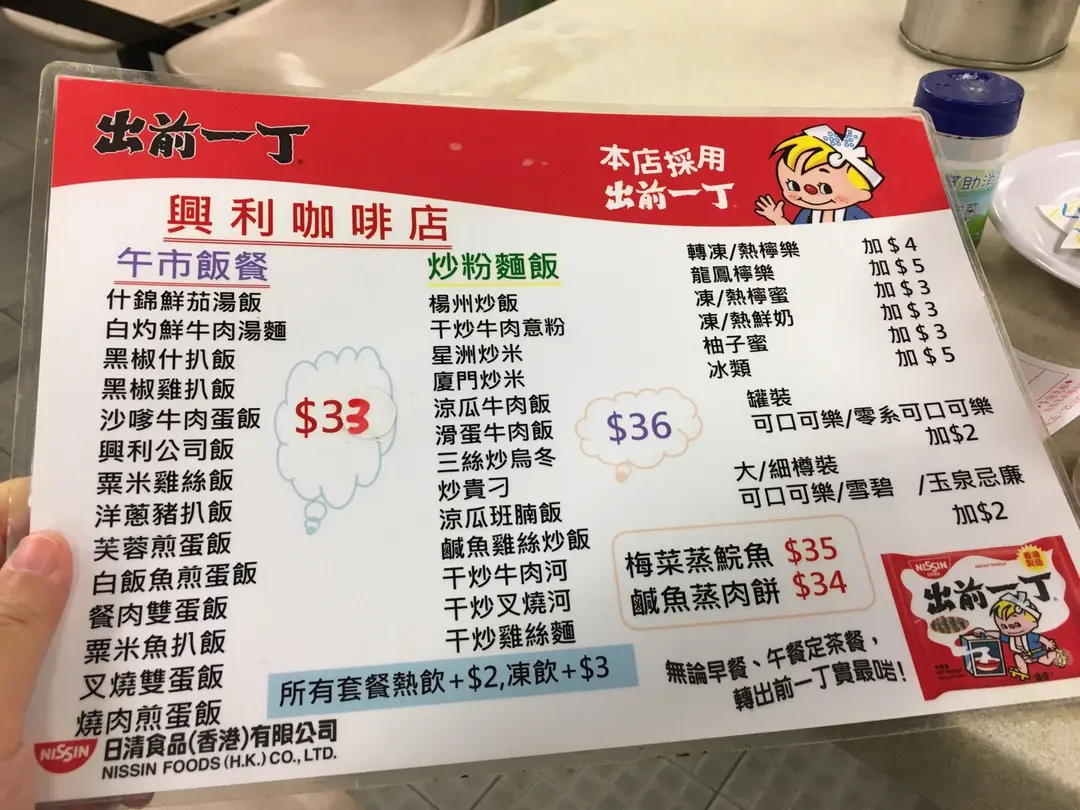 出前一丁
本店採用
出前一丁
興利咖啡店
午市飯餐
什錦鮮茄湯飯
白灼鮮牛肉湯麵
黑椒什扒飯
黑椒雞扒飯
沙嗲牛肉蛋飯
興利公司飯
粟米雞絲飯
洋蔥豬扒飯
芙蓉煎蛋飯
白飯魚煎蛋飯
餐肉雙蛋飯
粟米魚扒飯
叉燒雙蛋飯
燒肉煎蛋飯
$33
炒粉麵飯
楊州炒飯
干炒牛肉意粉
星洲炒米
廈門炒米
涼瓜牛肉飯
滑蛋牛肉飯
三絲炒烏冬
炒貴刁
涼瓜班腩飯
鹹魚雞絲炒飯
干炒牛肉河
干炒叉燒河
干炒雞絲麵
$36
轉凍/熱檸樂 加$4
龍鳳檸樂 加$5
凍/熱檸蜜 加$3
凍/熱鮮奶 加$3
柚子蜜 加$3
冰類 加$5
罐裝
可口可樂/零系可口可樂
加$2
大/細樽裝
可口可樂/雪碧 /玉泉忌廉
加$2
梅菜蒸鯇魚 $35
鹹魚蒸肉餅 $34
所有套餐熱飲+$2,凍飲+$3
無論早餐、午餐定茶餐，
轉出前一丁實最啱!
NISSIN
日清食品(香港)有限公司
NISSIN FOODS (H.K.) CO., LTD.
NISSIN
出前一丁
香港
製造